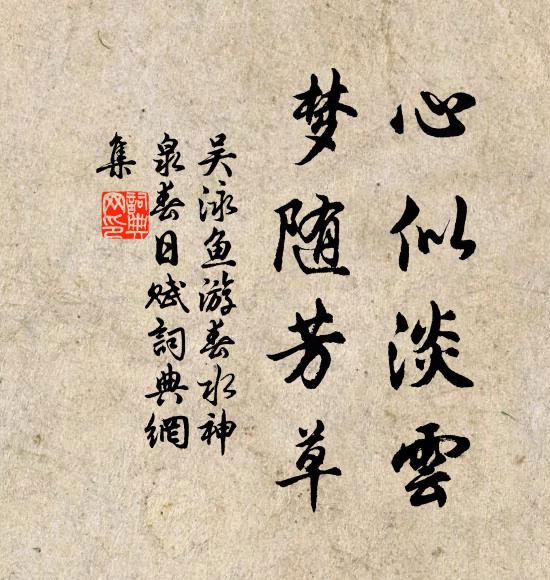 心似淡雲
梦随芳草
吴泳鱼游春水神
泉春日赋詞典網
集
詞典
网印